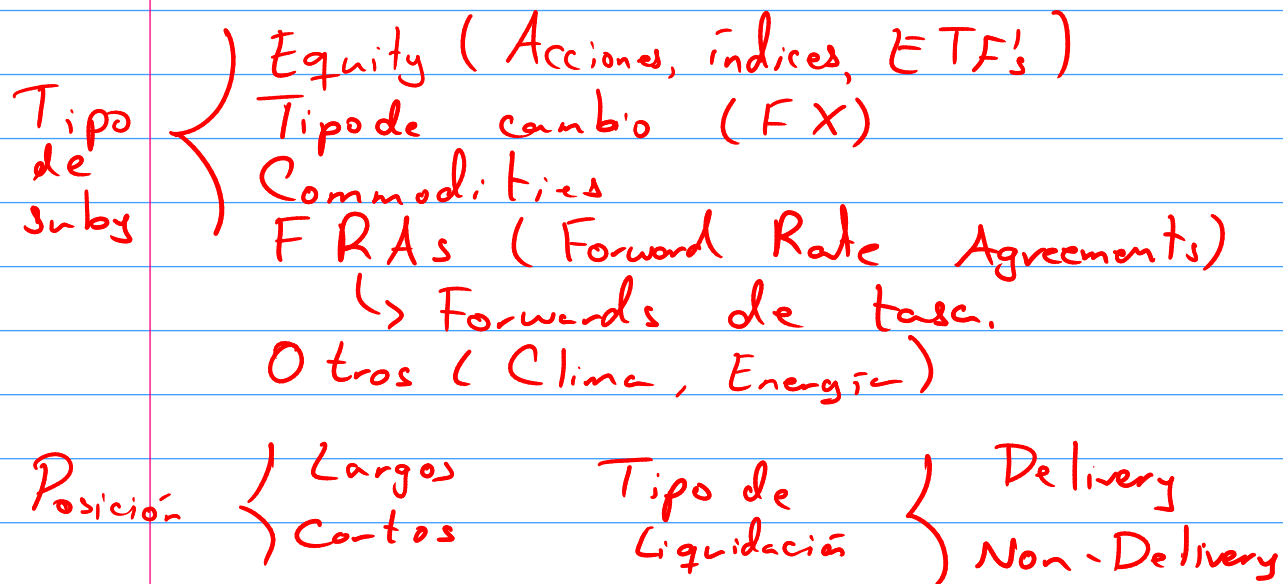 Tipo de suby
Equity (Acciones, índices, ETF's)
Tipo de cambio (FX)
Commodities
FRAs (Forward Rate Agreements)
↳ Forwards de tasa.
Otros (Clima, Energía)
Posición
Largos
Cortos
Tipo de Liquidación
Delivery
Non-Delivery